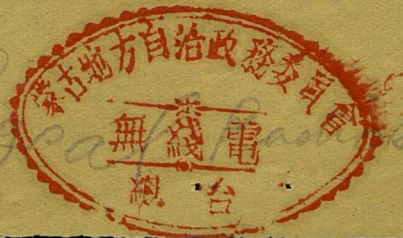 蒙古地方自治政務委員會
無綫電
總台